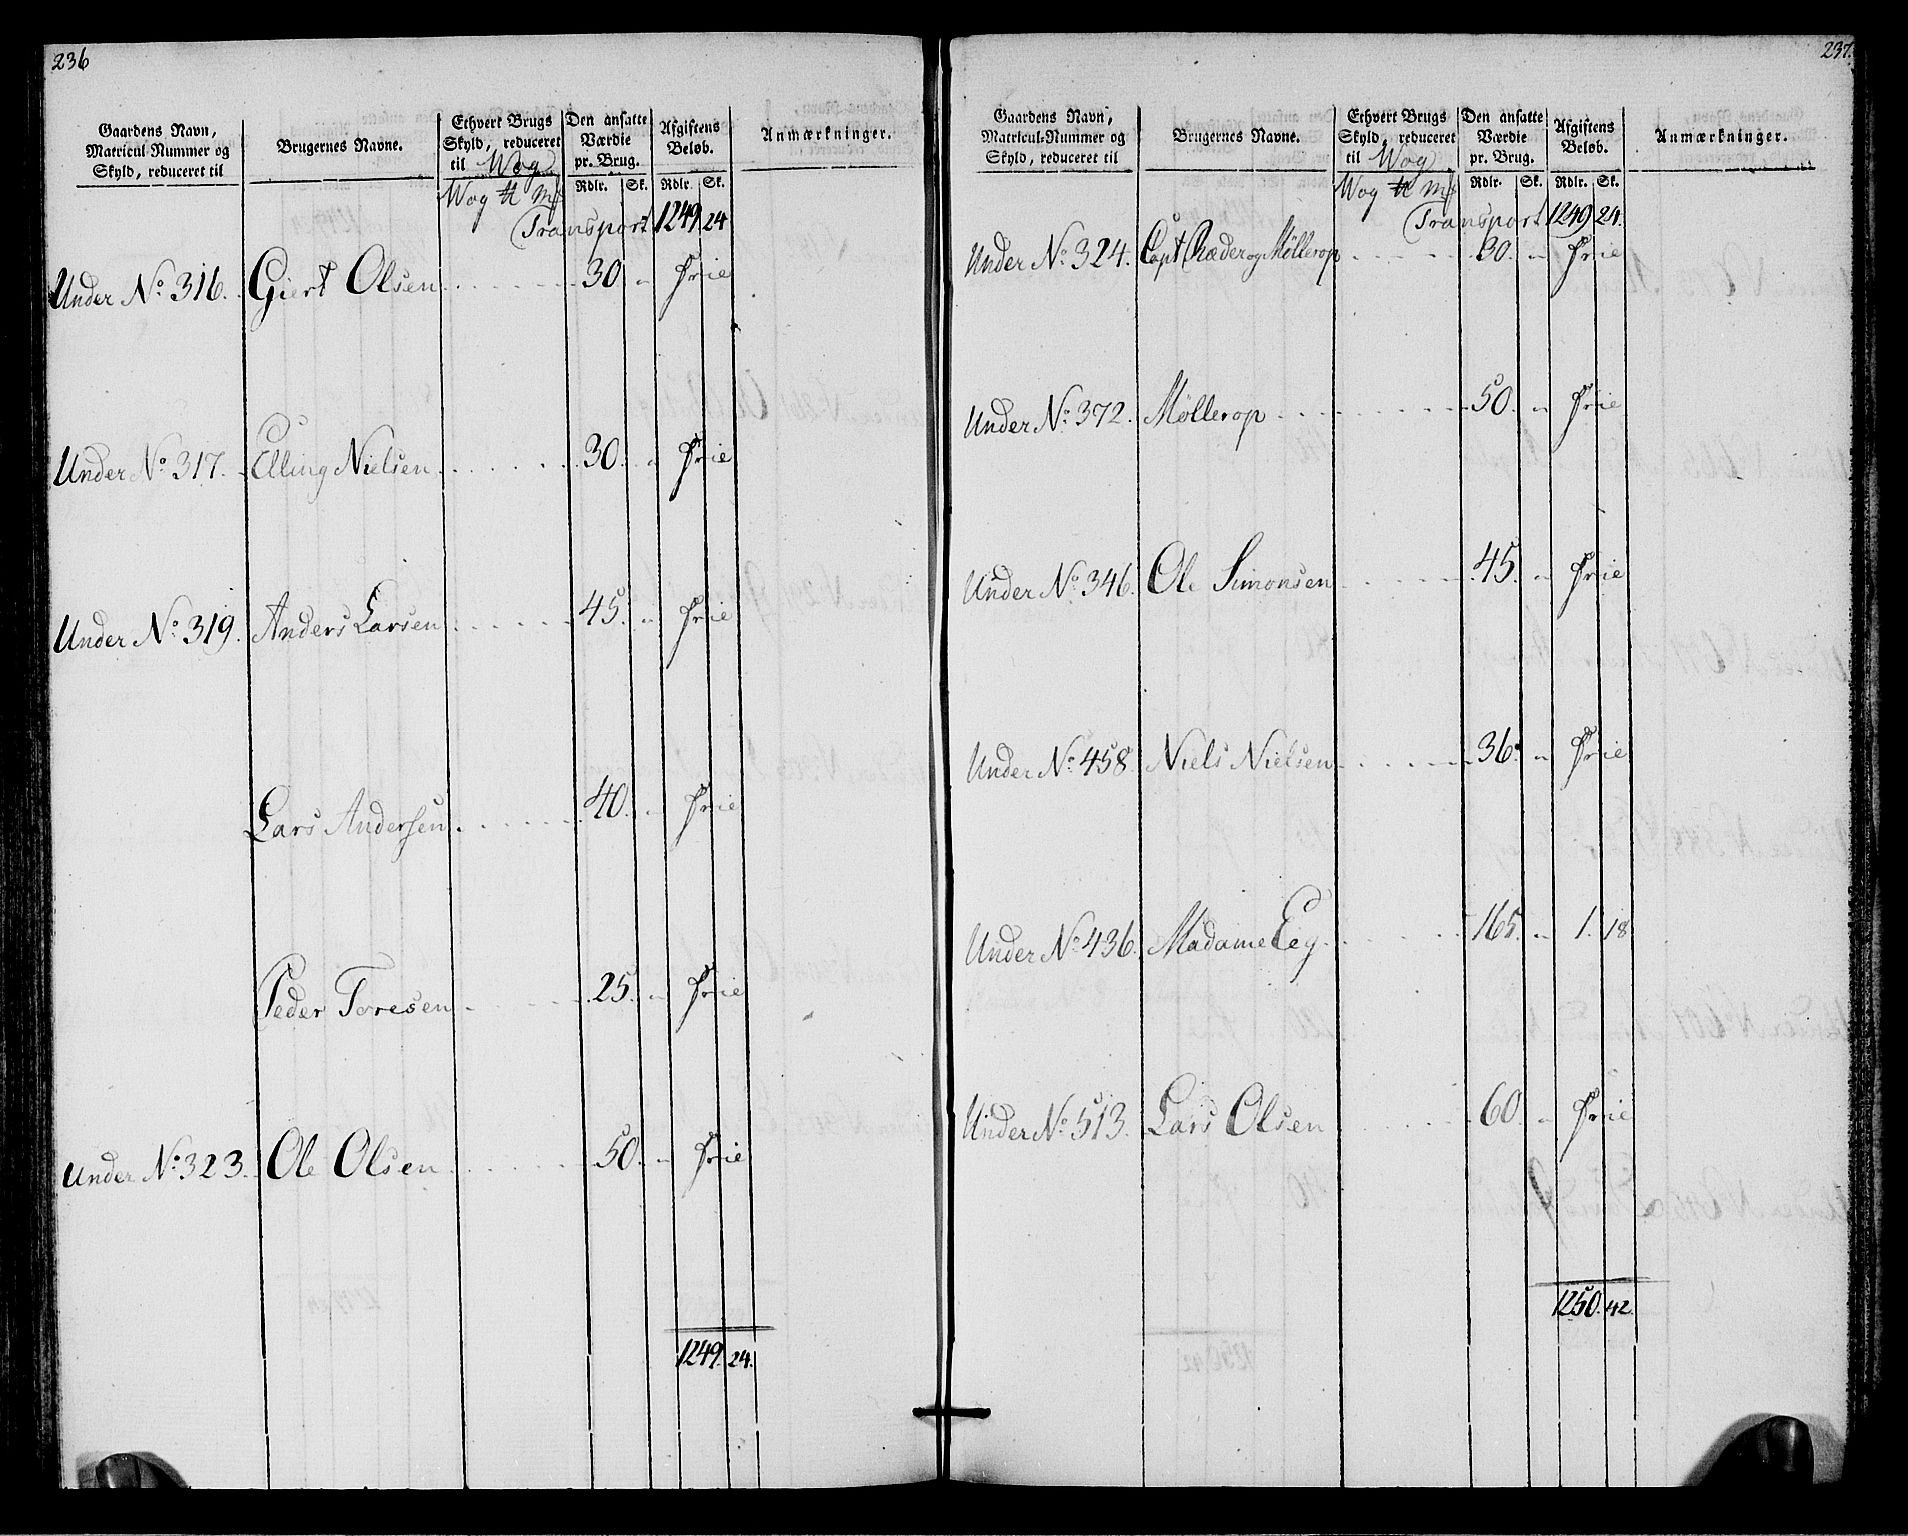 236
Gaardens Navn, Matricul-Nummer og Skyld, reduceret til
Brugernes Navne.
Ethvert Brugs Skyld, reduceret til Wog
Den ansatte Værdie pr. Brug.
Afgiftens Beløb.
Anmærkninger.
Wog ℔ Mk Rdlr. Sk. Rdlr. Sk.
Transport 1249 24
Under No. 316. Giert Olsen 30 " frie
Under No. 317. Elling Nielsen 30. " frie
Under No. 319. Anders Larsen 45. " frie
Lars Andersen 40. " frie
Peder Toresen 25. " frie
Under No. 323. Ole Olsen 50. " frie
1249. 24.
237.
Gaardens Navn, Matricul-Nummer og Skyld, reduceret til
Brugernes Navne.
Ethvert Brugs Skyld, reduceret til Wog
Den ansatte Værdie pr. Brug.
Afgiftens Beløb.
Anmærkninger.
Wog ℔ Mk Rdlr. Sk. Rdlr. Sk.
Transport 1249 24.
Under No. 324. Capt Ræder og Møllerop 30. " frie
Under No. 372. Møllerop 50. " frie
Under No. 346. Ole Simonsen 45. " frie
Under No. 458. Niels Nielsen 36. " frie
Under No. 436. Madame Eeg 165. " 1. 18
Under No. 513. Lars Olsen 60 " frie
1250. 42.